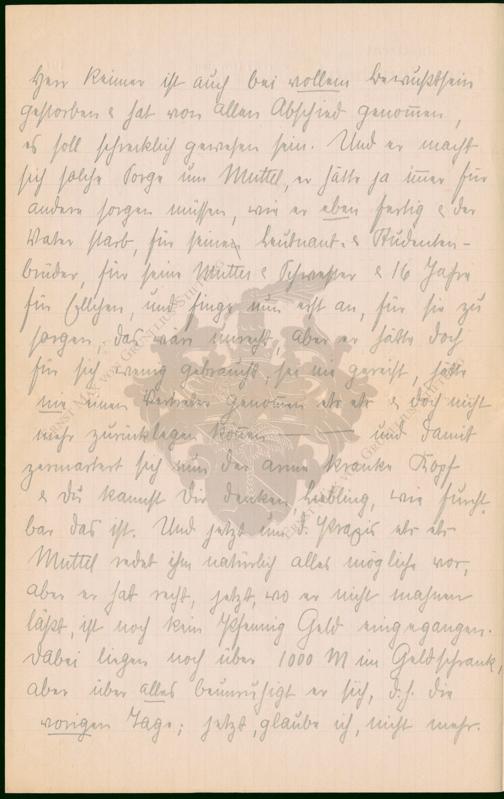 Herr Reimer ist auch bei vollem Bewußtsein
gestorben & hat von allen Abschied genommen,
es soll schrecklich gewesen sein. Und er macht
sich solche Sorge um Muttel, er hätte ja immer für
andere sorgen müssen, wie er eben fertig & der
Vater starb, für seinen Leutnant- & Studenten-
brüder, für seine Mutter & Schwester & 16 Jahre
für Ellchen, und finge nun erst an, für sie zu
sorgen, das wär unrecht, aber er hätte doch
für sich wenig gebraucht, sei nie gereist, hätte
nie einen Vertreter genommen etc etc & doch nicht
mehr zurücklegen können — und damit
zermartert sich nun der arme kranke Kopf
& Du kannst Dir denken, Liebling, wie furcht-
bar das ist. Und jetzt um d. Praxis etc etc
Muttel redet ihm natürlich alles mögliche vor,
aber er hat recht, jetzt, wo er nicht mahnen
läßt, ist noch kein Pfennig Geld eingegangen.
Dabei liegen noch über 1000 M im Geldschrank,
aber über alles beunruhigt er sich, d.h. die
vorigen Tage; jetzt, glaube ich, nicht mehr.